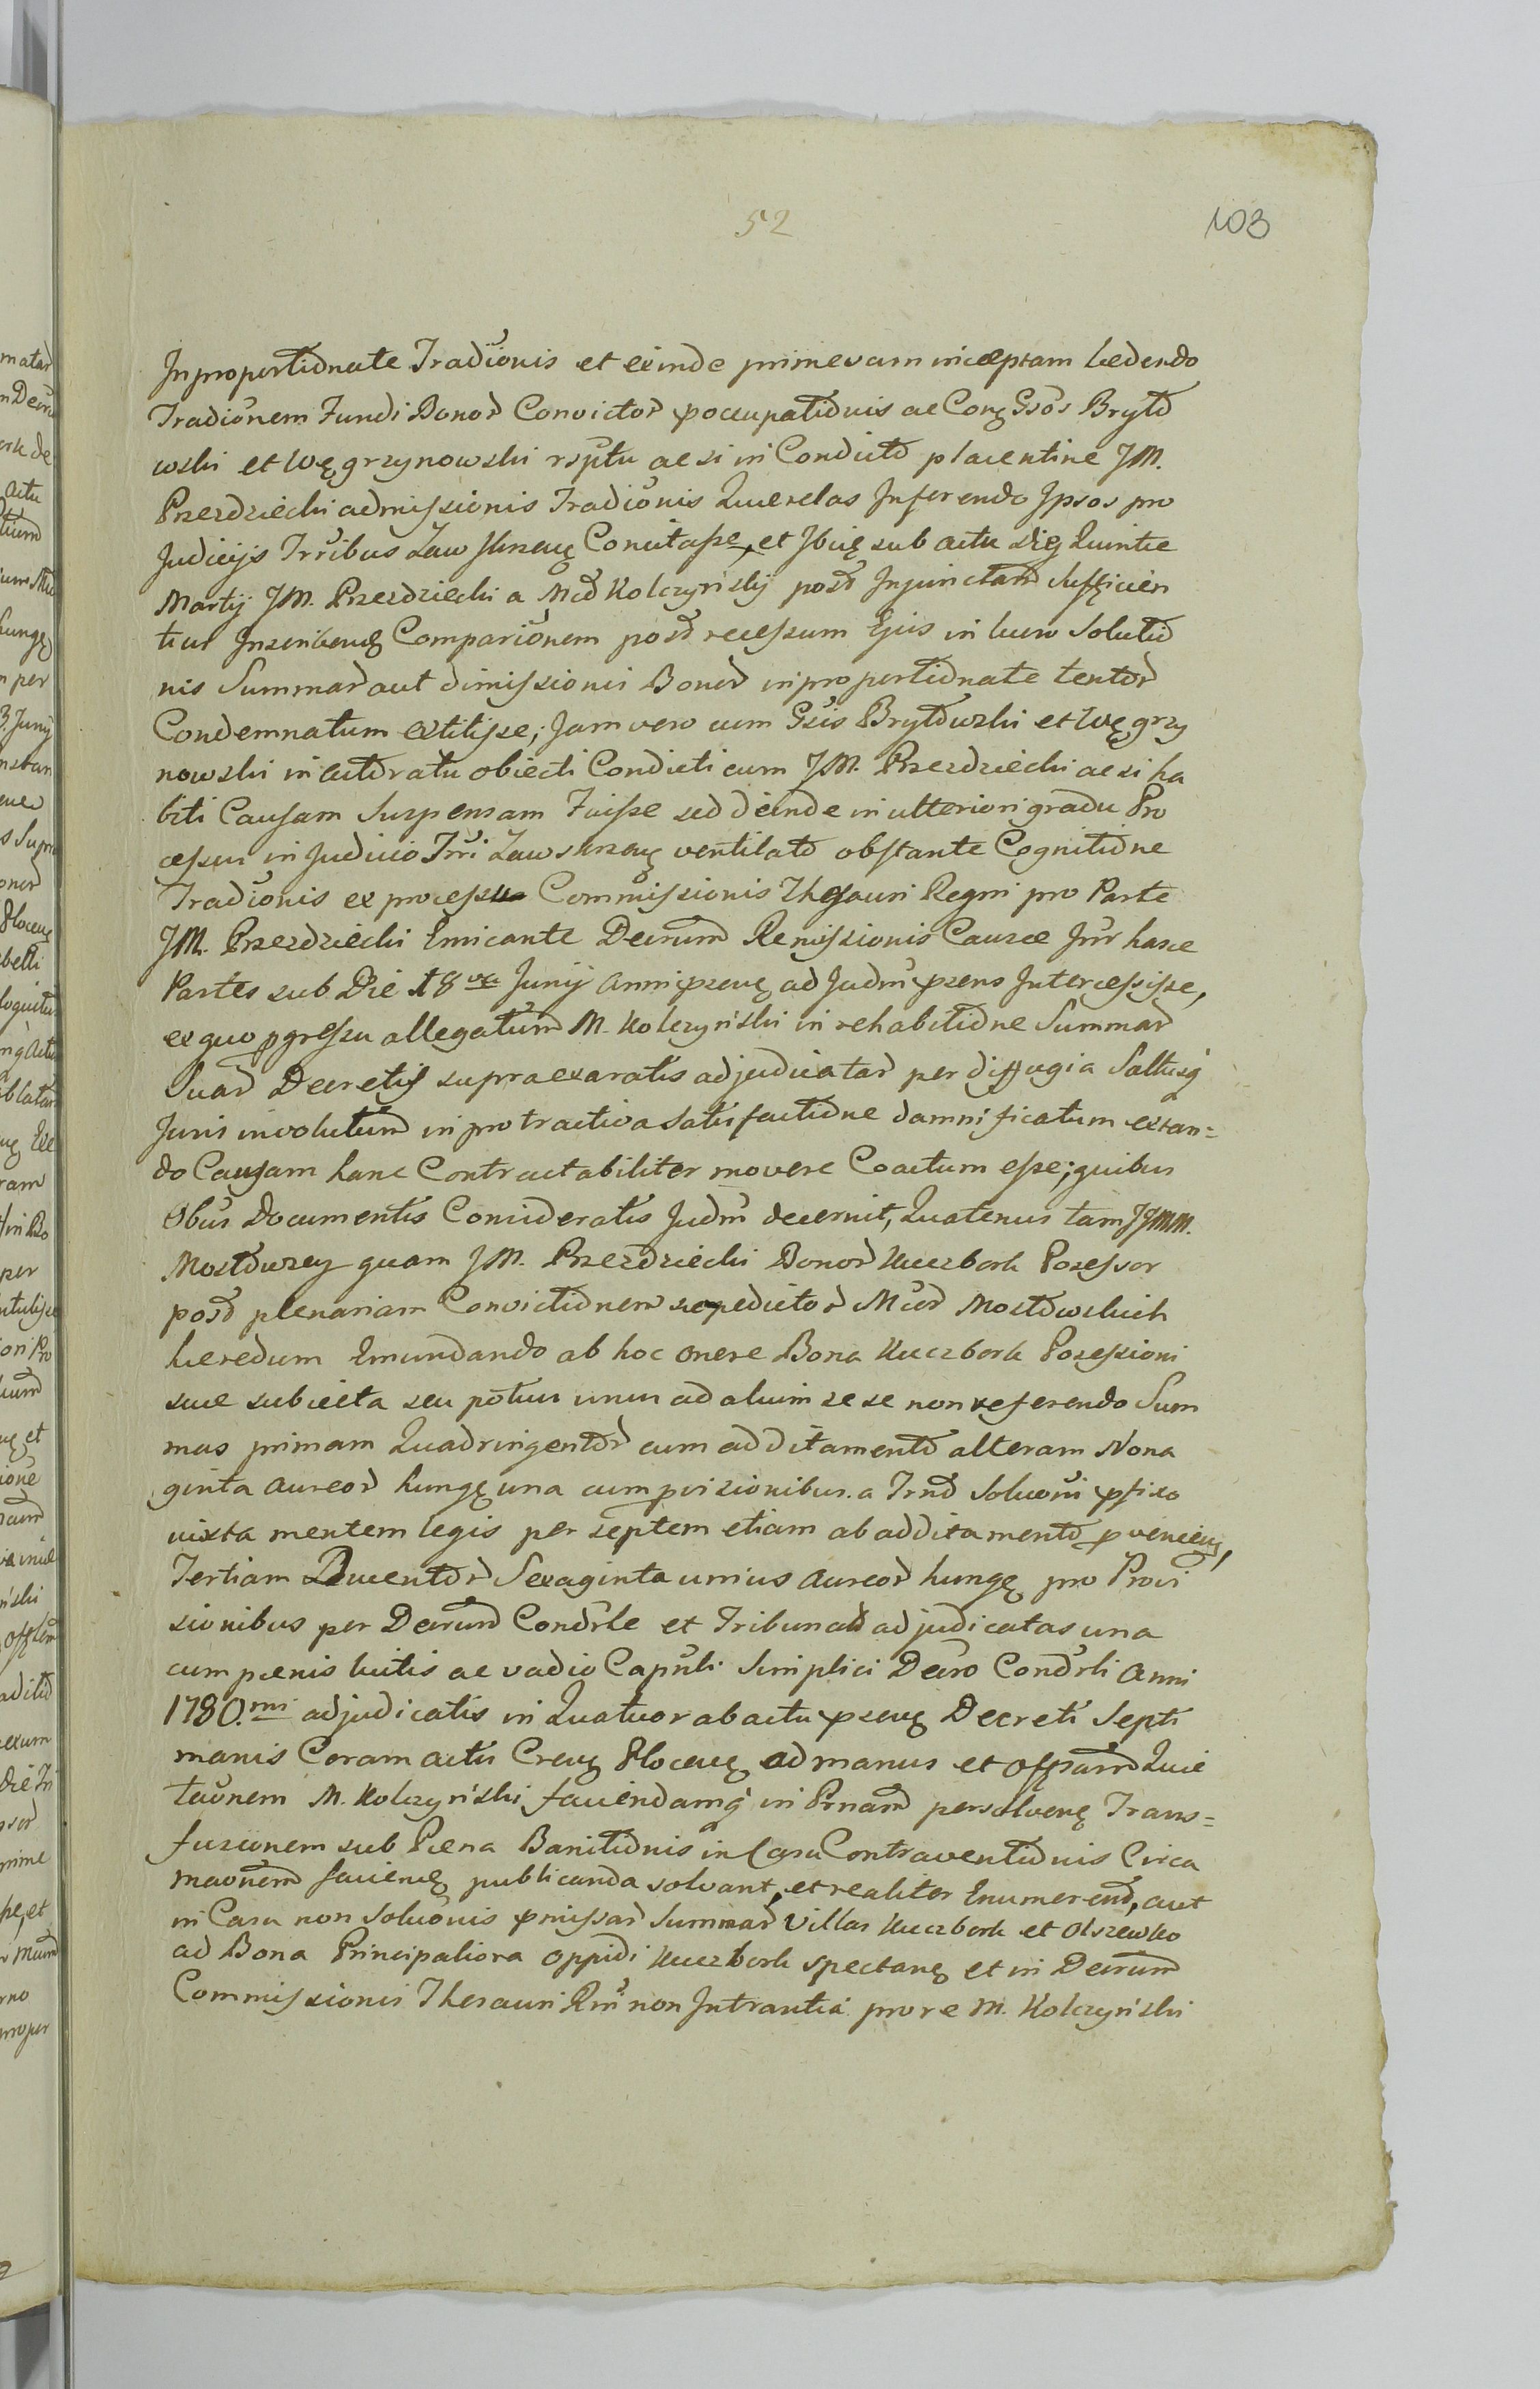 52
103
Inproportiōnate Tradīonis et exinde primevam inceptam ledendo
Tradiōnem Fundi Bonoꝝ Convictoꝝ ꝑ occupatiōnis ac Conꝫ Gsōs Brytō
wski et Węgrzynowski rsptu ac si in Condictō placentine JM.
Przezdziecki admissionis Tradiōnis Querelas Inferendo Ipsos pro
Judicijs Trribus Zawskrzenꝫ Concitasse, et Ibiꝫ sub actu diej Quinte
Martij JM. Przezdziecki a Mcō Kolczyński post Injunctam Sufficien
tius Inseribenꝫ Compariōnem post recessum Ejus in lucro Solutiō
nis Summaꝝ aut dimissionis Bonoꝝ inproportiōnate tentoꝝ
Condemnatum extitisse; Jam vero cum Gsis Brytōwski et Węgrzy
nowski in actoratu obiecti Condicti cum JM. Przezdziecki ac si ha
biti Causam Suspensam Fuisse sed deinde in ulteriori gradu Pro
cessus in Judicio Trri Zawskrzenꝫ ventilatō obstante Cognitiōne
Tradiōnis ex processu Commissionis Thesauri Regni pro Parte
JM. Przezdziecki Emicante Decrum Remissionis Causæ Intr hasce
Partes sub Die 18va Junij Anni pzenꝫ ad Judm pzens Intercessisse,
ex quo ꝓgressu allegatum M. Kolczyński in rehabitiōne Summaꝝ
Suaꝝ Decretis supraexaratis adjudicataꝝ per diffugia Saltusq
Juris involutum in protractiva Satisfactiōne damnificatum extan=
do Causam hanc Contractabiliter movere Coactum esse; quibus
Obus Documentis Consideratis Judm decernit, Quatenus tam JJMM.
Mostōwscy quam JM. Przezdziecki Bonoꝝ Kuczbork Posessor
post plenariam Convictiōnem sepedictoꝝ Mcoꝝ Mostōwskich
heredum Emundando ab hoc onere Bona Kuczbork Posessioni
sue subiecta seu potius unus ad alium se se non referendo Sum
mas primam Quadringentoꝝ cum additamentō alteram Nona
ginta Aureoꝝ hungꝫ una cum pvisionibus a Trno Soluōni ꝑfixo
iuxta mentem legis per septem etiam ab additamentō ꝓvenienꝫ,
Tertiam Ducentoꝝ Sexaginta unius Aureoꝝ hungꝫ pro Provi
sionibus per Decrum Condrle et Tribunalō adjudicatas una
cum pœnis luitis ac vadio Capnli Simplici Decro Condrli Anni
1780.mi adjudicatis in Quatuor ab actu pzenꝫ Decreti Septi
manis Coram actis Crenꝫ Plocenꝫ ad manus et offparam Quie
taōnem M. Kolczyński faciendamq in Prnam persolvenꝫ Trans=
fusionem sub Pœna Banitiōnis in Casu Contraventiōnis Circa
maōnem facienꝫ publicanda solvant, et realiter Enumerent, aut
in Casu non Soluōnis pmissaꝝ Summaꝝ Villas Kuczbork et Olszewko
ad Bona Principaliora oppidi Kuczbork spectanꝫ et in Decrum
Commissionis Thesauri Rni non Intrantia pro re M. Kolczyński